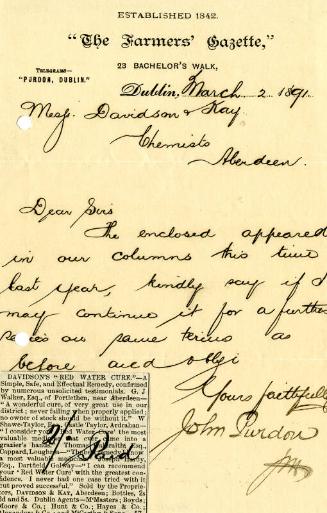 ESTABLISHED 1842.
"The Farmers' Gazette,"
23 BACHELOR'S WALK,
TELEGRAMS—
"PURDON, DUBLIN."
Dublin, March 2 1891.
Messs. Davidson & Kay
Chemists
Aberdeen.
Dear Sirs
The enclosed appeared
in our columns this time
last year, kindly say if I
may continue it for a further
series on same terms as
before and oblige
Yours faithfully
John Purdon
DAVIDSON'S "RED WATER CURE."—A
Simple, Safe, and Effectual Remedy, confirmed
by numerous unsolicited testimonials. G. J.
Walker, Esq., of Portlethen, near Aberdeen—
"A wonderful cure, of very great use in our
district; never failing when properly applied;
no owner of stock should be without it." W
Shawe-Taylor, Esq., Castle Taylor, Ardrahan—
"I consider your Red Water Cure the most
valuable
grazier's
Coppard, Loughrea—
a most valuable
Esq., Dartfield, Galway—"I can recommend
your 'Red Water Cure' with the greatest confidence.
I never had one case tried with it
but proved successful." Sold by the Proprietors,
DAVIDSON & KAY, Aberdeen; Bottles, 2s
and 5s. Dublin Agents—M'Masters; Boyd;
Moore & Co.; Hunt & Co.; Hayes & Co.